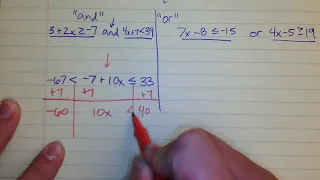 "and" "or"
3+2x ≥ -7 and 4x+7<39 7x-8 ≤ -15 or 4x-5 ≥ 19
-67 < -7+10x ≤ 33
+7 +7 +7
-60 10x ≤ 40